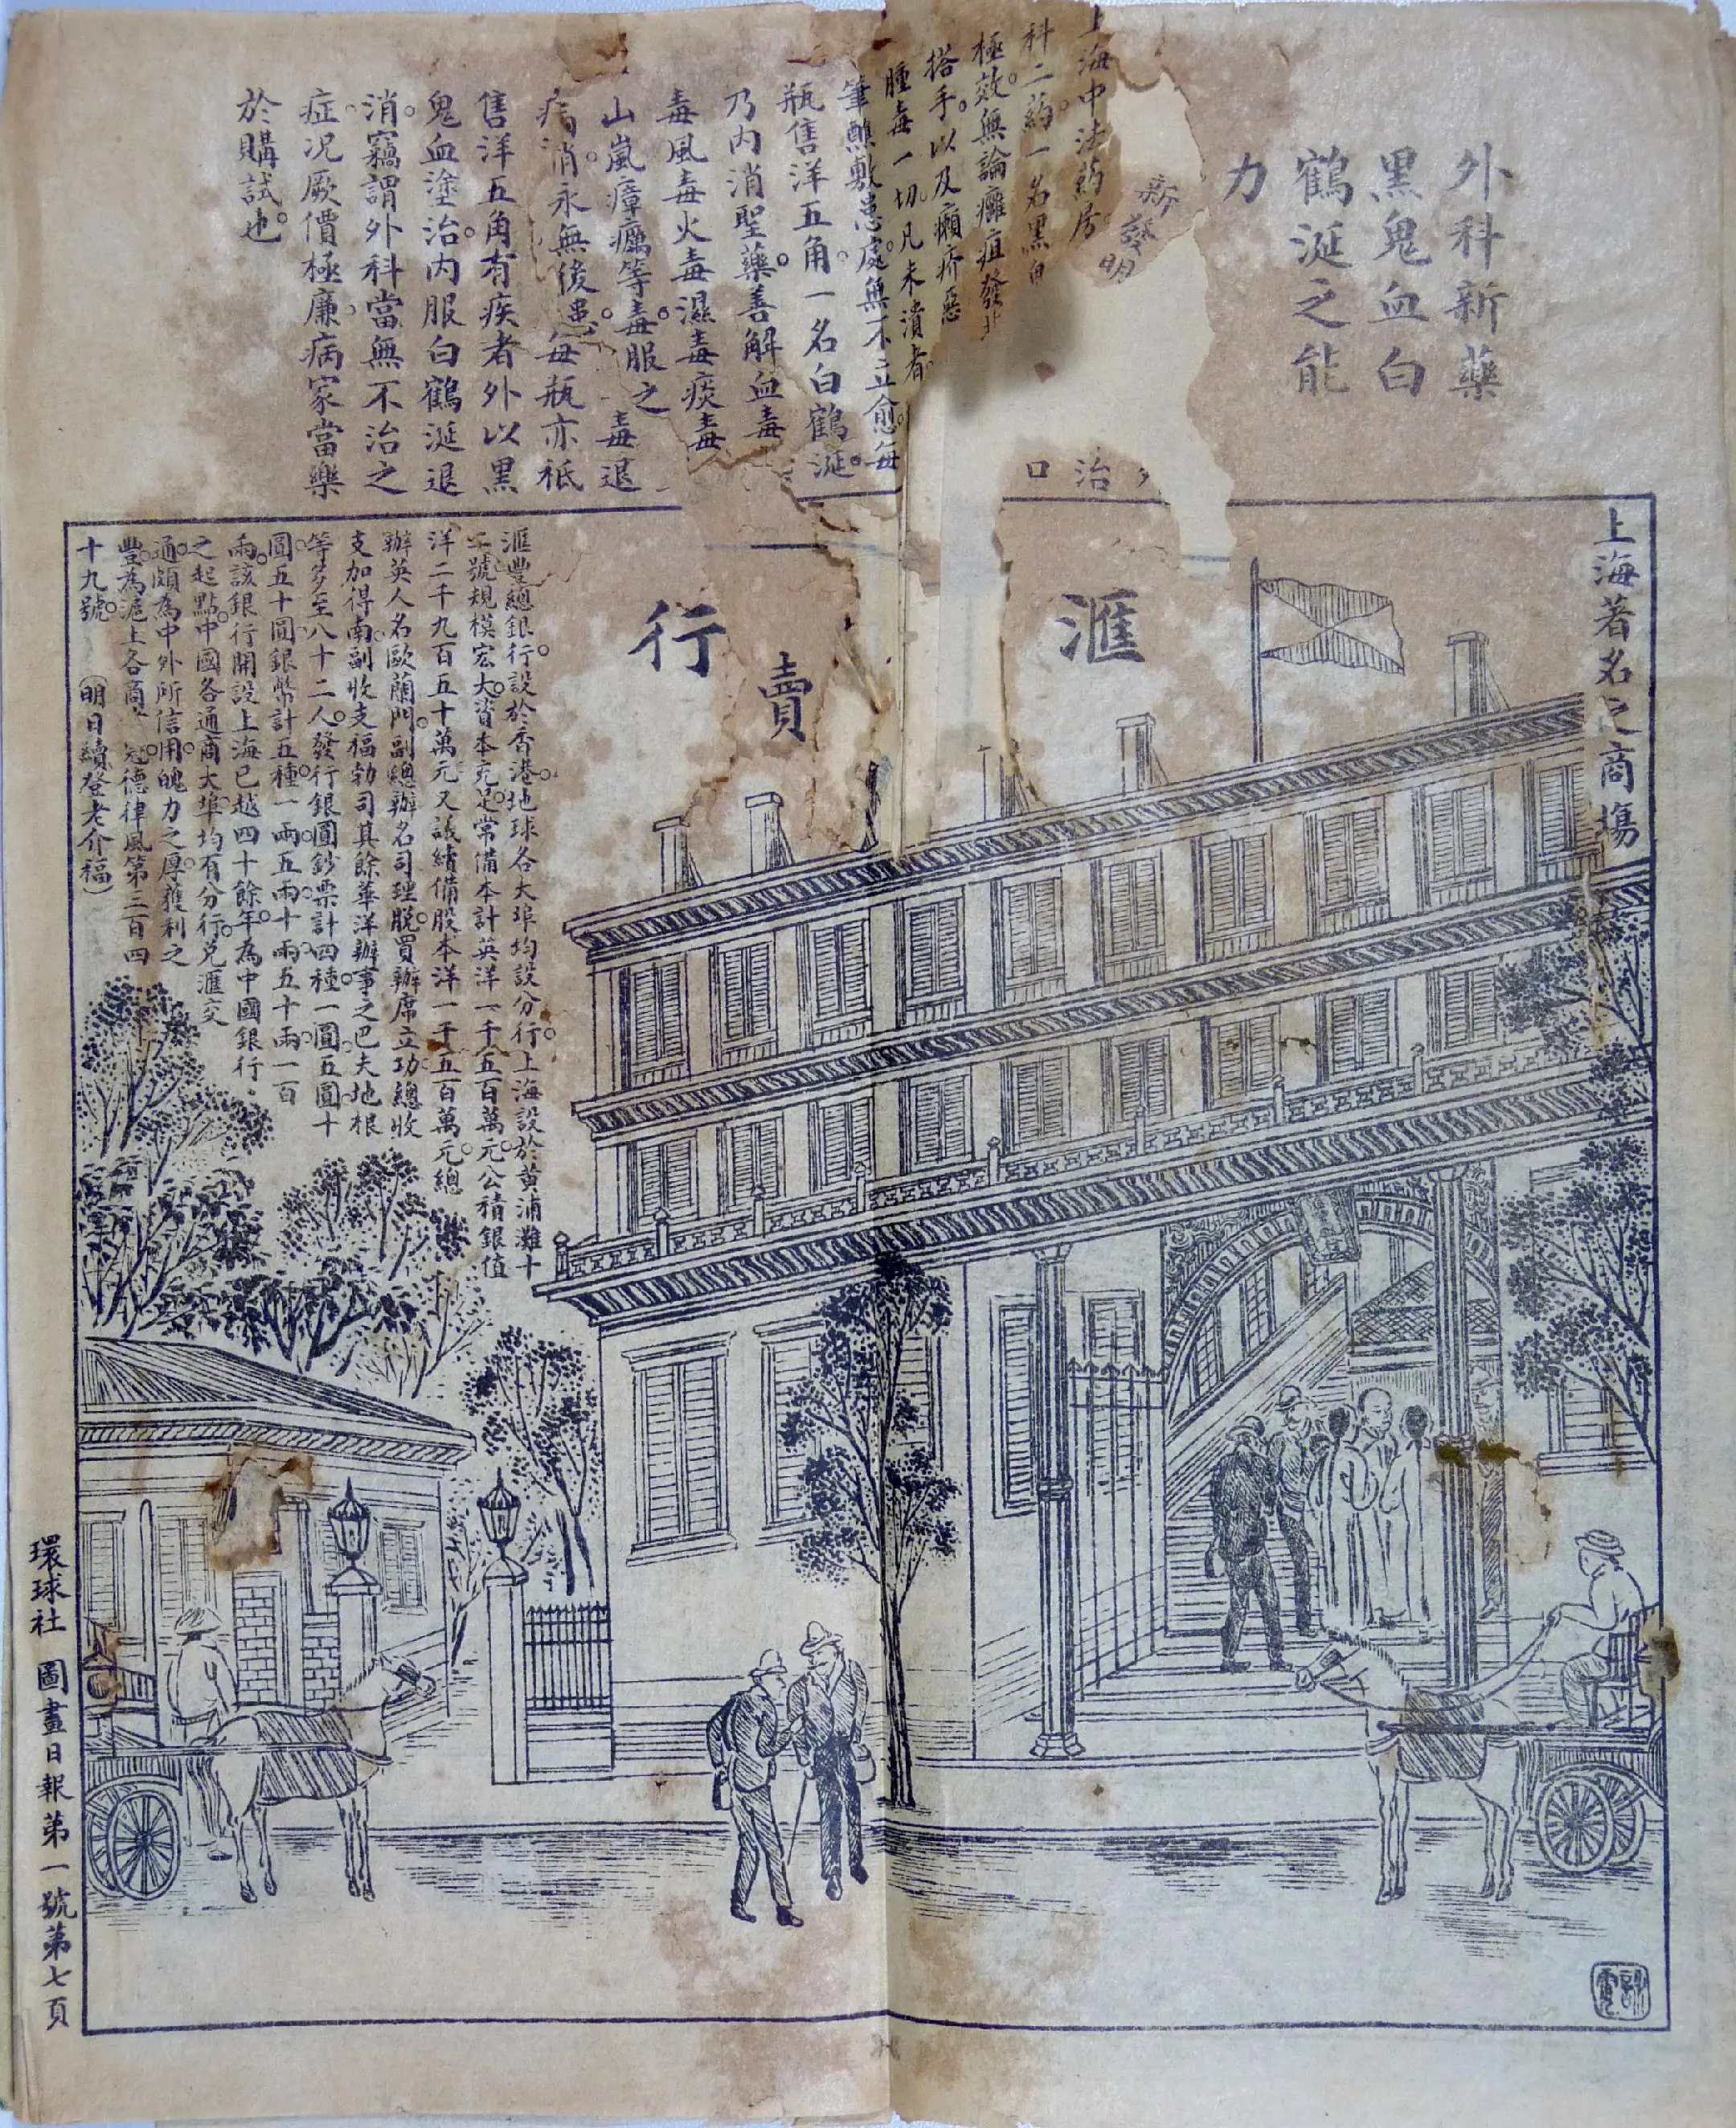 外科新藥
黑鬼血白
鶴涎之能
力
新發明
上海中法葯房
科二葯。一名黑鬼
極效。無論癰疽發
搭手。以及癩疥惡
腫毒一切。凡未潰者
筆蘸敷患處。無不立愈。每
瓶售洋五角。一名白鶴涎。
乃內消聖藥。善解血毒
毒風毒火毒濕毒痰毒
山嵐瘴癘等毒。服之一毒退
病消。永無後患。每瓶亦祇
售洋五角有疾者外以黑
鬼血塗治。內服白鶴涎退
消。竊謂外科當無不治之
症。况厥價極廉。病家當樂
於購試也。
治口
上海著名之商塲
滙
賣
行
滙豐總銀行。設於香港。地球各大埠均設分行。上海設於黄浦灘十
二號規模宏大。資本充足。常備本計英洋一千五百萬元。公積銀值
洋二千九百五十萬元又議續備股本洋一千五百萬元。總
辦英人名歐蘭門。副總辦名司理脱。買辦席立功。總收
支加得南。副收支福勃司其餘華洋辦事之巴夫地根
等多至八十二人。發行銀圓鈔票計四種。一圓。五圓。十
圓。五十圓。銀幣計五種。一兩五兩十兩五十兩一百
兩。該銀行開設上海已越四十餘年。為中國銀行。
之起點。中國各通商大埠。均有分行。兑滙交
通。頗為中外所信用。魄力之厚。獲利之
豐。為滬上各商冠。德律風第三百四
十九號。 （明日續登老介福）
環球社 圖畫日報第一號第七頁